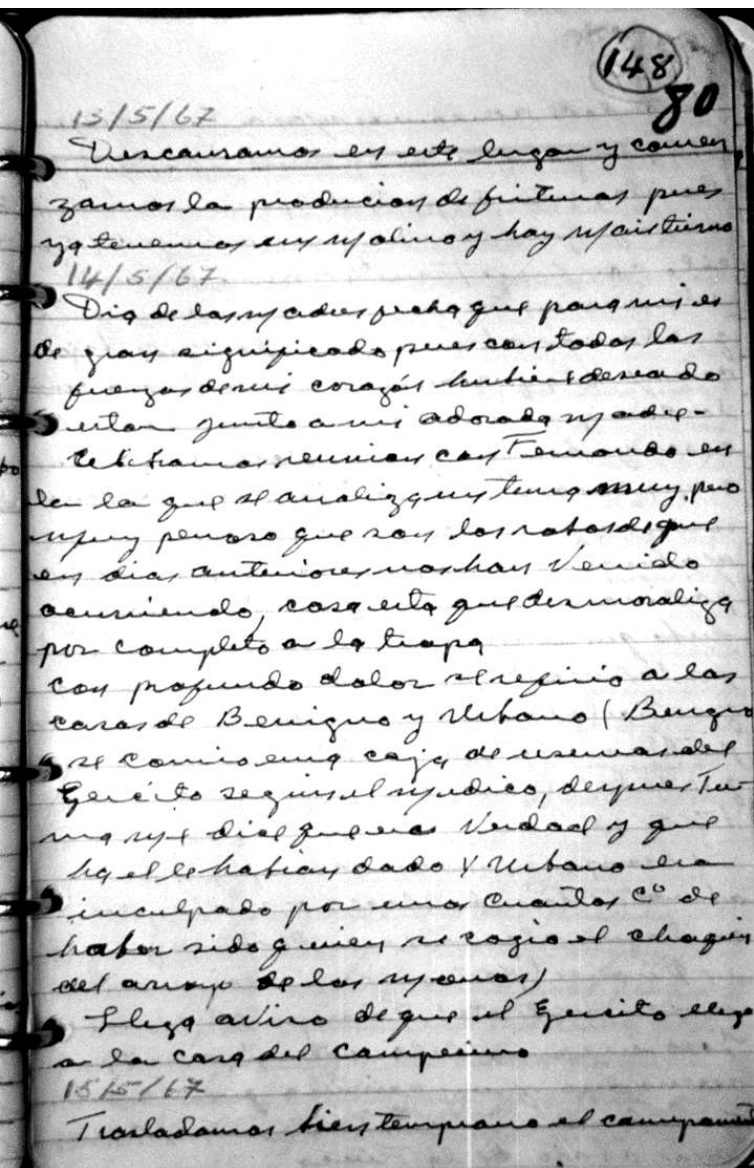 148
80
13/5/67
Descansamos en este lugar y comen
zamos la producion de frituras pues
ya tenemos un molino y hay mais tierno
14/5/67
Dia de las madres fecha que para mi es
de gran significado pues con todas las
fuerzas de mi corazón hubiera deseado
estar junto a mi adorada madre-
Celebramos reunion con Fernando en
la que se analiza un tema muy, pero
muy penoso que son los robos de que
en dias anteriores nos han venido
ocurriendo, cosa esta que desmoraliza
por completo a la tropa
con profundo dolor se refirio a los
casos de Benigno y Urbano (Benigno
se comio una caja de reservas del
Ejercito segun el medico, despues Tu
ma me dice que era verdad y que
ha el le habian dado y Urbano era
inculpado por unos cuantos Co de
haber sido quien se cogio el chaqui
del arroyo de los monos)
Llega aviso de que el Ejercito llego
a la casa del campesino
15/5/67
Trasladamos bien temprano el campament